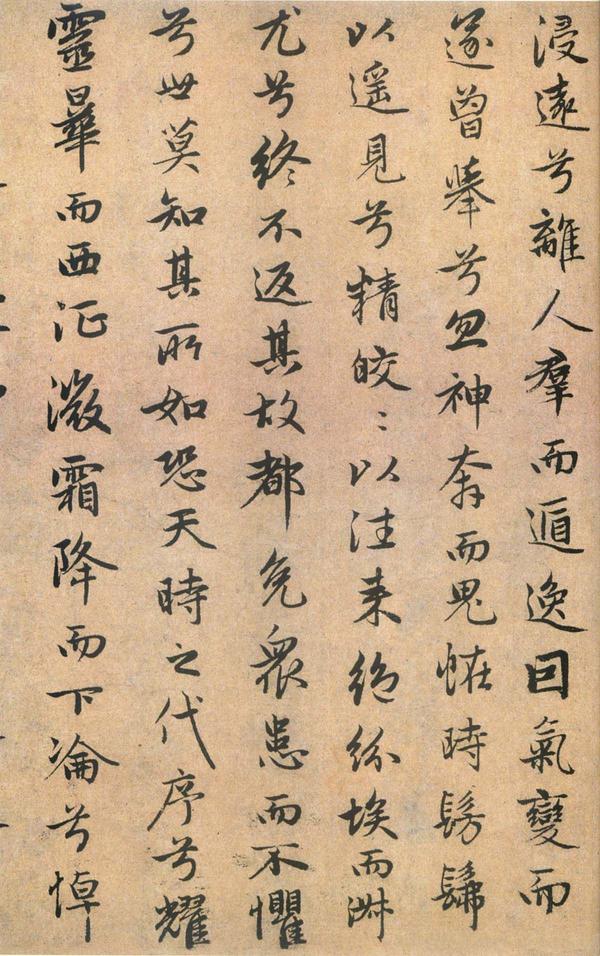 浸遠兮離人羣而遁逸囙氣變而
遂曾舉兮忽神奔而鬼恠時髣髴
以遥見兮精皎〻以往来絶紛埃而淑
尤兮終不返其故都免衆患而不懼
兮世莫知其所如恐天時之代序兮耀
靈曅而西征微霜降而下淪兮悼